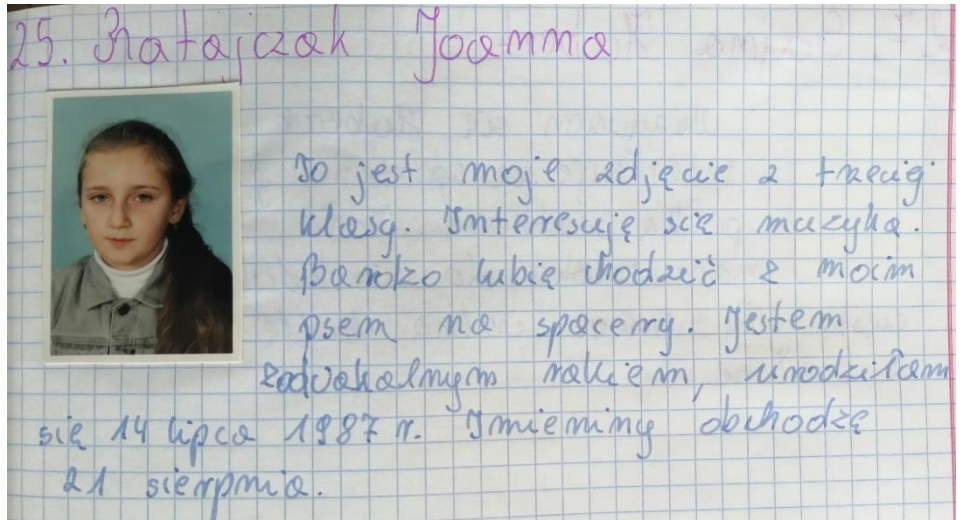 25. Ratajczak Joanna
To jest moje zdjęcie z trzeciej
klasy. Interesuję się muzyką.
Bardzo lubię chodzić z moim
psem na spacery. Jestem
zodiakalnym rakiem, urodziłam
się 14 lipca 1987 r. Imieniny obchodzę
21 sierpnia.